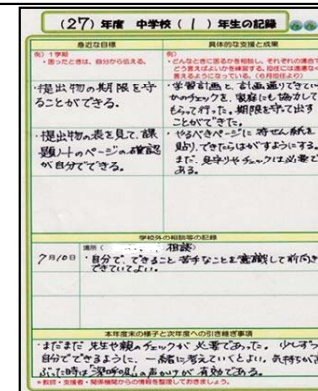 (27)年度 中学校(1)年生の記録
身近な目標
具体的な支援と成果
例)1学期
・困ったときは、自分から伝える。
例)
・どんなときに困るかを相談し、それぞれの場合で
どう言えばよいかを練習する。担任には遠慮なく
言えるようになっている。(6月担任より)
・提出物の期限を守
ることができる。
・学習計画と、計画通りできてい
るかのチェックを、家庭にも協力して
もらって行った。期限を守って出す
ことができてきた。
・提出物の表を見て、課
題ノートのページの確認
が自分でできる。
・やるべきページに付せん紙を
貼り、できたらはがすようにする。
まだ、見守りやチェックは必要で
ある。
学校外の相談等の記録
7月10日
場所( 相談)
・自分で、できること苦手なことを意識して前向き
できていてよい。
本年度末の様子と次年度への引き継ぎ事項
・まだまだ先生や親のチェックが必要であった。少しずつ
自分でできるように、一緒に考えていくとよい。気持ちが
ぶった時は"深呼吸"の声かけが有効である。
*教師・支援者・関係機関からの情報を整理しておきましょう。